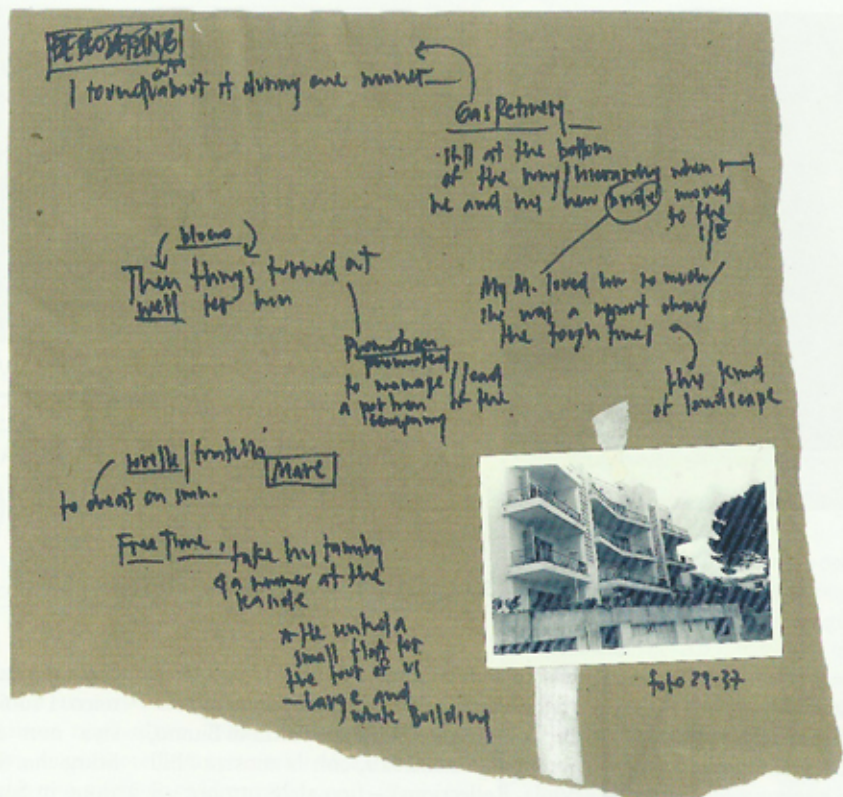 I found out about it during one summer
Gas Refinery
still at the bottom
of the hierarchy when
he and his new bride moved
to the
blows
Then things turned at
well for him
My M. loved him so much
she was a support during
the tough times
this kind
of landscape
Promotion
promoted
to manage / lead
a of the
company
sorelle / fratelli
Mare
to cheat on smn.
Free Time. take his family
4 a summer at the
* He rented a
small flat for
the four of us
— Large and
white Building
foto 29-37